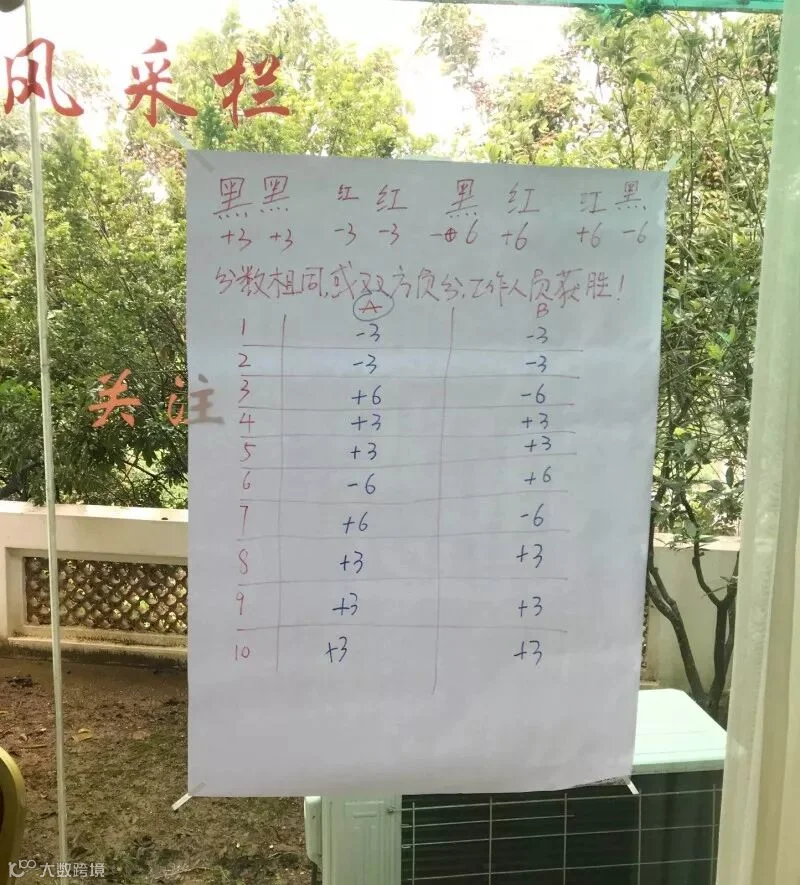 风采栏
黑黑 红红 黑红 红黑
+3 +3 -3 -3 -6 +6 +6 -6
分数相同,或双方负分,工作人员获胜!
A B
1 -3 -3
2 -3 -3
3 +6 -6
关注
4 +3 +3
5 +3 +3
6 -6 +6
7 +6 -6
8 +3 +3
9 +3 +3
10 +3 +3
大数跨境